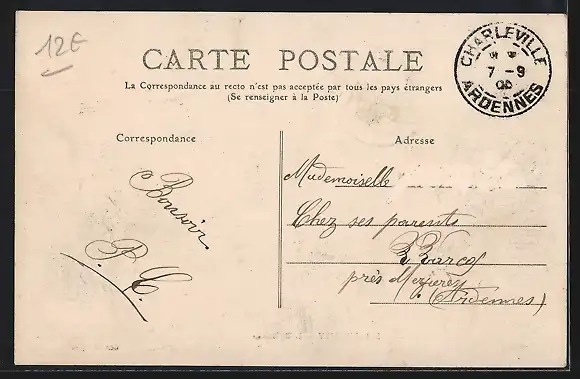 12E
CARTE POSTALE
La Correspondance au recto n'est pas acceptée par tous les pays étrangers
(Se renseigner à la Poste)
CHARLEVILLE
7 - 9
ARDENNES
Correspondance
Adresse
Bonsoir
P. C.
Mademoiselle
Chez ses parents
près Mezières
(Ardennes)